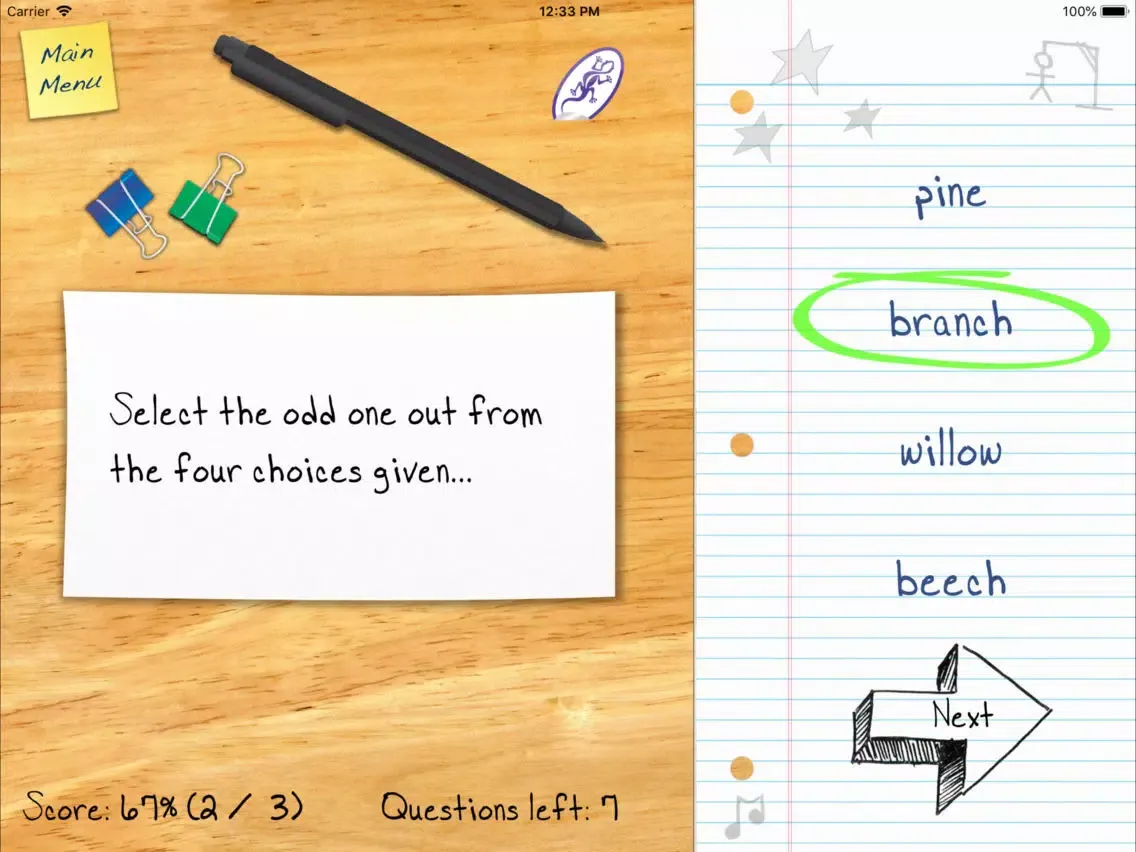 Carrier
12:33 PM
100%
Main
Menu
Select the odd one out from
the four choices given...
pine
branch
willow
beech
Next
Score: 67% (2 / 3)
Questions left: 7